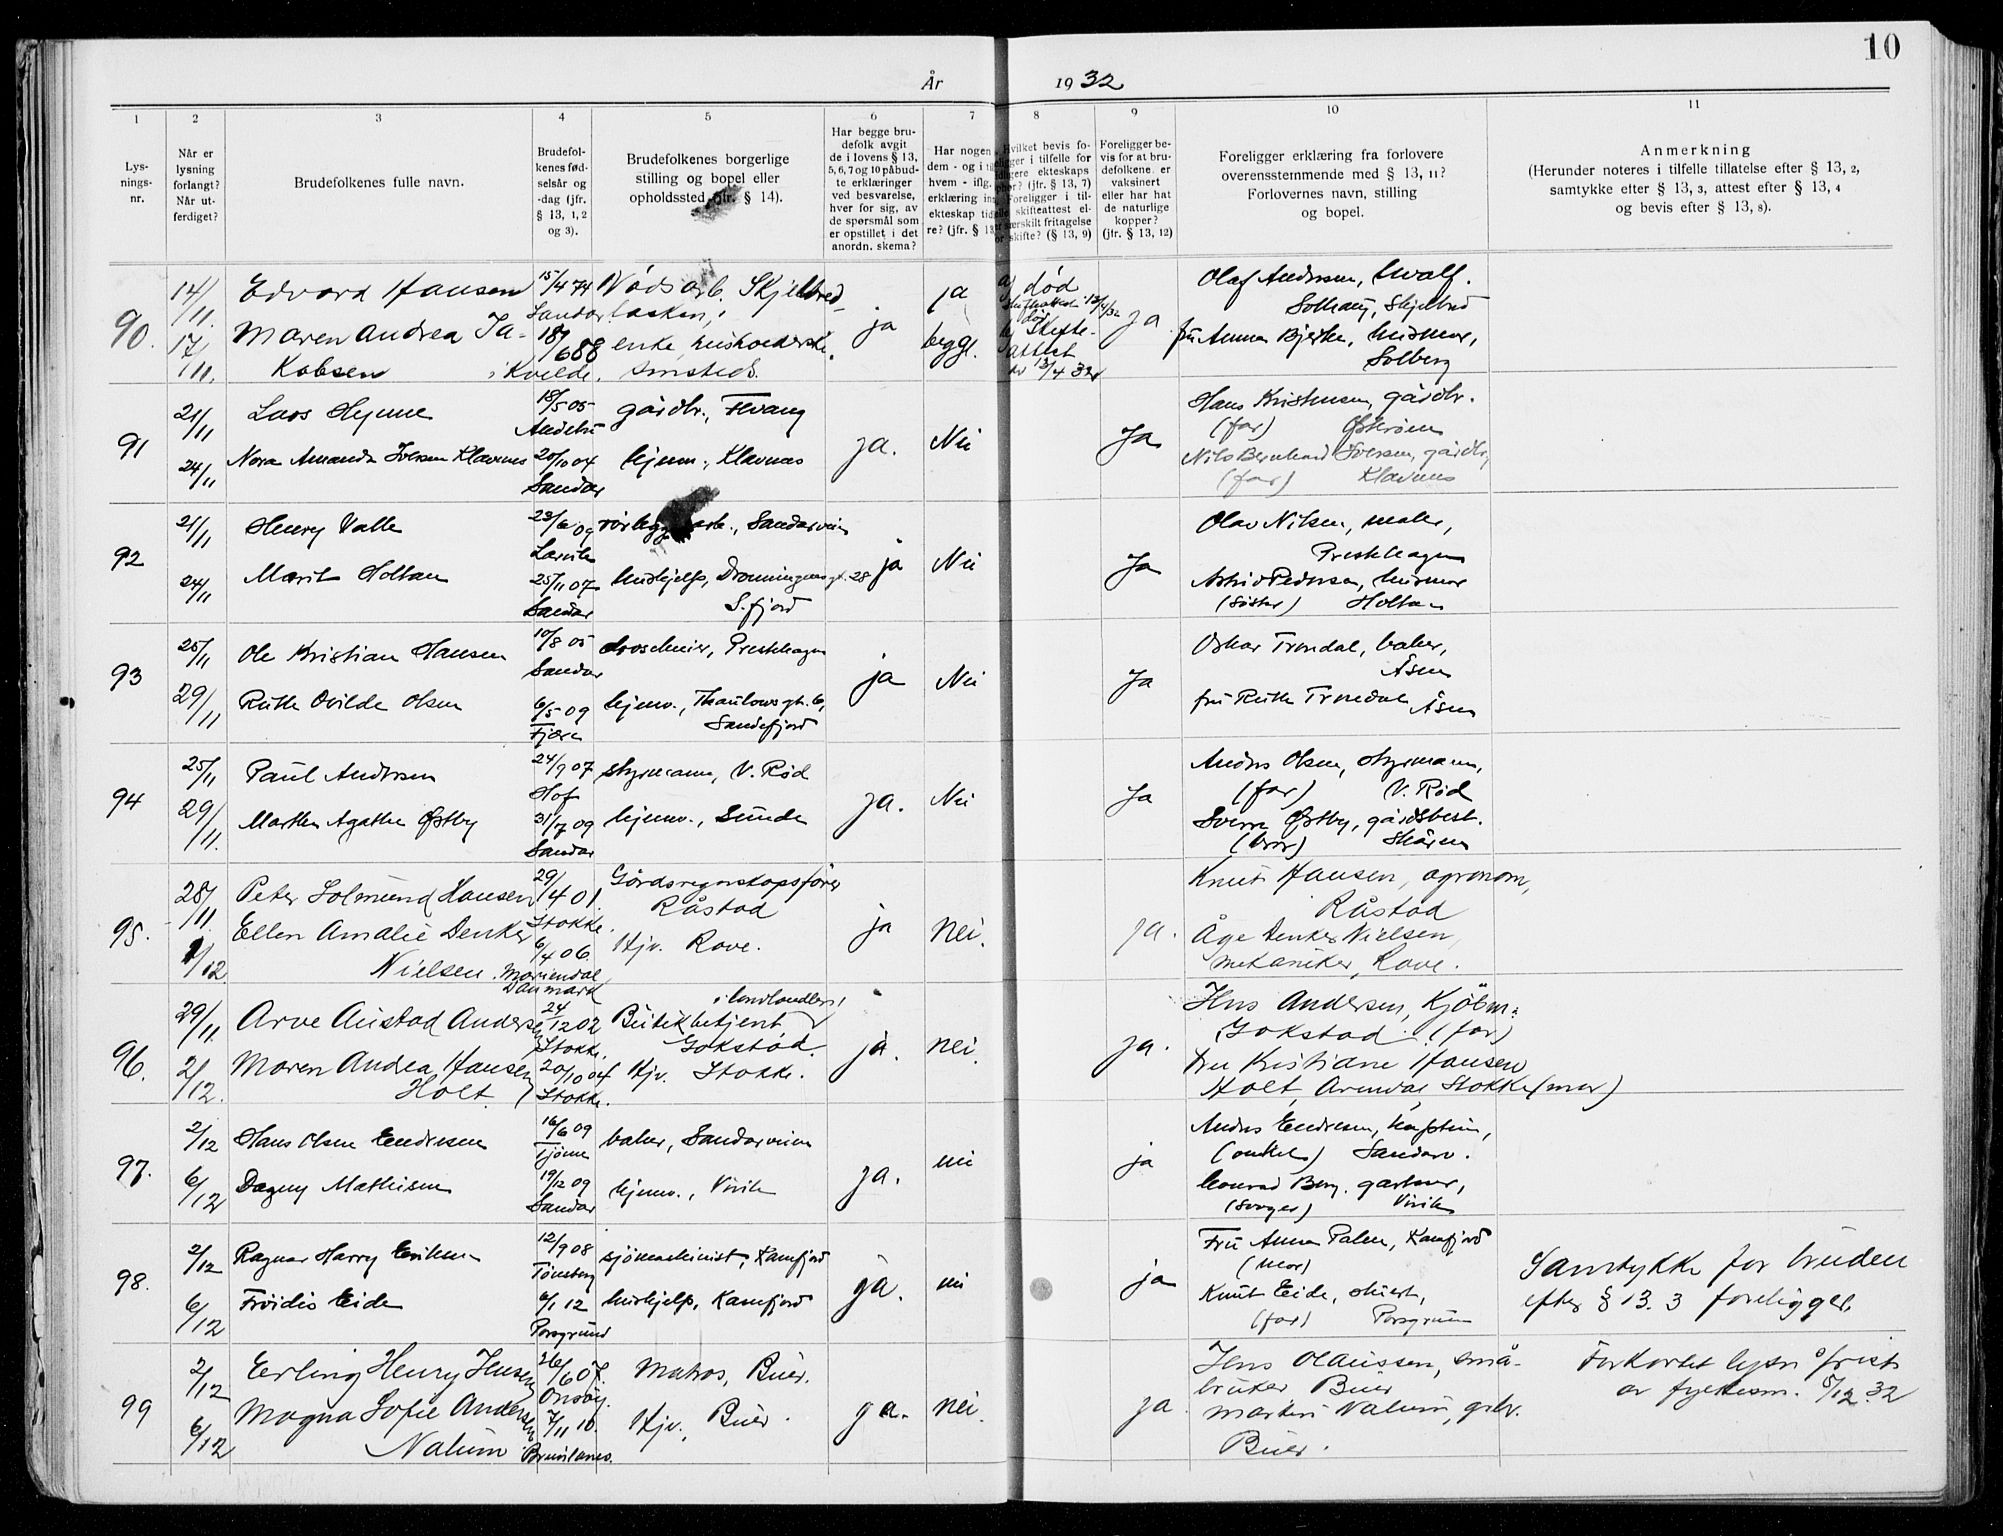 10
År 1932
1 2 3 4 5 6 7 8 9 10 11
Lys-
nings-
nr.
Når er
lysning
forlangt?
Når ut-
ferdiget?
Brudefolkenes fulle navn.
Brudefol-
kenes fød-
selsår og
-dag (jfr.
§ 13, 1, 2
og 3).
Brudefolkenes borgerlige
stilling og bopel eller
opholdssted (jfr. § 14).
Har begge bru-
defolk avgit
de i lovens § 13,
5, 6, 7 og 10 påbud-
te erklæringer
ved besvarelse,
hver for sig, av
de spørsmål som
er opstillet i det
anordn. skema?
Har nogen
dem - og i
hvem - iflg.
erklæring
ekteskap
re? (jfr. §
Hvilket bevis fo-
religger i tilfelle for
ekteskaps
(jfr. § 13, 7)
Foreligger i til-
skifteattest el-
særskilt fritagelse
for skifte? (§ 13, 9)
Foreligger be-
vis for at bru-
defolkene er
vaksinert
eller har hat
de naturlige
kopper?
(jfr. § 13, 12)
Foreligger erklæring fra forlovere
overensstemmende med § 13, 11?
Forlovernes navn, stilling
og bopel.
Anmerkning
(Herunder noteres i tilfelle tillatelse efter § 13, 2,
samtykke efter § 13, 3, attest efter § 13, 4
og bevis efter § 13, 8).
90.
14/11.
17/11.
Edvard Hansen
Maren Andrea Ja-
kobsen
15/4 74
Sandar
18/6 88
Kvelde.
Nødsarb. Skjelbred-
løkken,
enke, husholderske
ja
ja
begge.
død
Skifte-
attest
13/4 32
ja
Olaf Andersen,
Solhaug, Skjelbred
fru Anna Bjerke, husmor,
Solberg
91
21/11
24/11
Lars Hynne
Nora Amanda Iversen Klavnes
18/5 05
Andebu
20/10 04
Sandar
gårdbr., Hvang
hjemv., Klavnes
ja.
Nei
Ja
Hans Kristensen, gårdbr.
(far)
Nils Bernhard Iversen, gårdbr.,
(far) Klavnes
92
21/11
24/11
Henry Valle
Marit Holtan
23/6 09
Larvik
25/11 07
Sandar
Sandarveien
hushjelp, Dronningensgt. 28
S.fjord
ja
Nei
Ja
Olav Nilsen, maler,
Presthagen
Astrid Pedersen, husmor
(søster) Holtan
93
25/11
29/11
Ole Kristian Hansen
Ruth Ovilde Olsen
10/8 05
Sandar
6/5 09
Fjære
droscheeier, Presthagen
hjemv., Thaulowsgt. 6,
Sandefjord
ja
Nei
Ja
Oskar Trondal, baker,
Åsen
fru Ruth Trondal, Åsen
94
25/11
29/11.
Paul Andersen
Marthe Agathe Østby
24/9 07
Hof
31/7 09
Sandar
styrmann, V. Rød
hjemv., Sunde
ja.
Nei
Ja
Anders Olsen, styrmann,
(far) V. Rød
Sverre Østby, gårdsbest.
(bror) Skåren
95.
28/11.
1/12.
Peter Solmund Hansen
Ellen Amalie Denker
Nielsen.
29/4 01.
Stokke.
6/4 06.
Mariendal
Danmark
Gårdsregnskapsfører
Råstad
Hjv. Rove.
ja
Nei.
ja.
Knut Hansen, agronom,
Råstad
Åge Denker Nielsen,
mekaniker, Rove.
96.
29/11.
2/12.
Arve Austad Andersen
Maren Andrea Hansen
Holt.
24/12 02
Stokke.
20/10 04
Stokke.
Butikbetjent,
Gokstad.
Hjv. Stokke.
ja.
nei.
ja.
Jens Andersen, Kjøbm:
Gokstad. (far)
Fru Kristiane Hansen
Holt, Arendal, Stokke (mor)
97.
2/12
6/12
Hans Olsen Endresen
Dagny Mathisen
16/6 09
Tjøme
19/12 09
Sandar
baker, Sandarveien
hjemv., Virik
ja.
nei
ja
Anders Endresen, kaptein,
(onkel) Sandarv.
Konrad Berg, gartner,
(svoger) Virik
98.
2/12
6/12
Ragnar Harry Eriksen
Frøidis Eide
12/9 08
Tønsberg
6/1 12
Porsgrund
sjømaskinist, Kamfjord
hushjelp, Kamfjord
ja.
nei
ja
Fru Anna Palm, Kamfjord
(mor)
Knut Eide, skiert,
(far) Porsgrunn
Samtykke for bruden
efter § 13. 3 foreligger.
99
2/12
6/12
Erling Henry Jensen
Magna Sofie Andersen
Nalum
26/6 07.
Onsøy.
7/11 10.
Brunlanes.
Matros, Buer.
Hjv., Buer.
ja.
nei.
ja.
Jens Olaussen, små-
bruker Buer
Martin Nalum, grbr.
Buer.
Forkortet lysn.frist
av fylkesm. 5/12 32